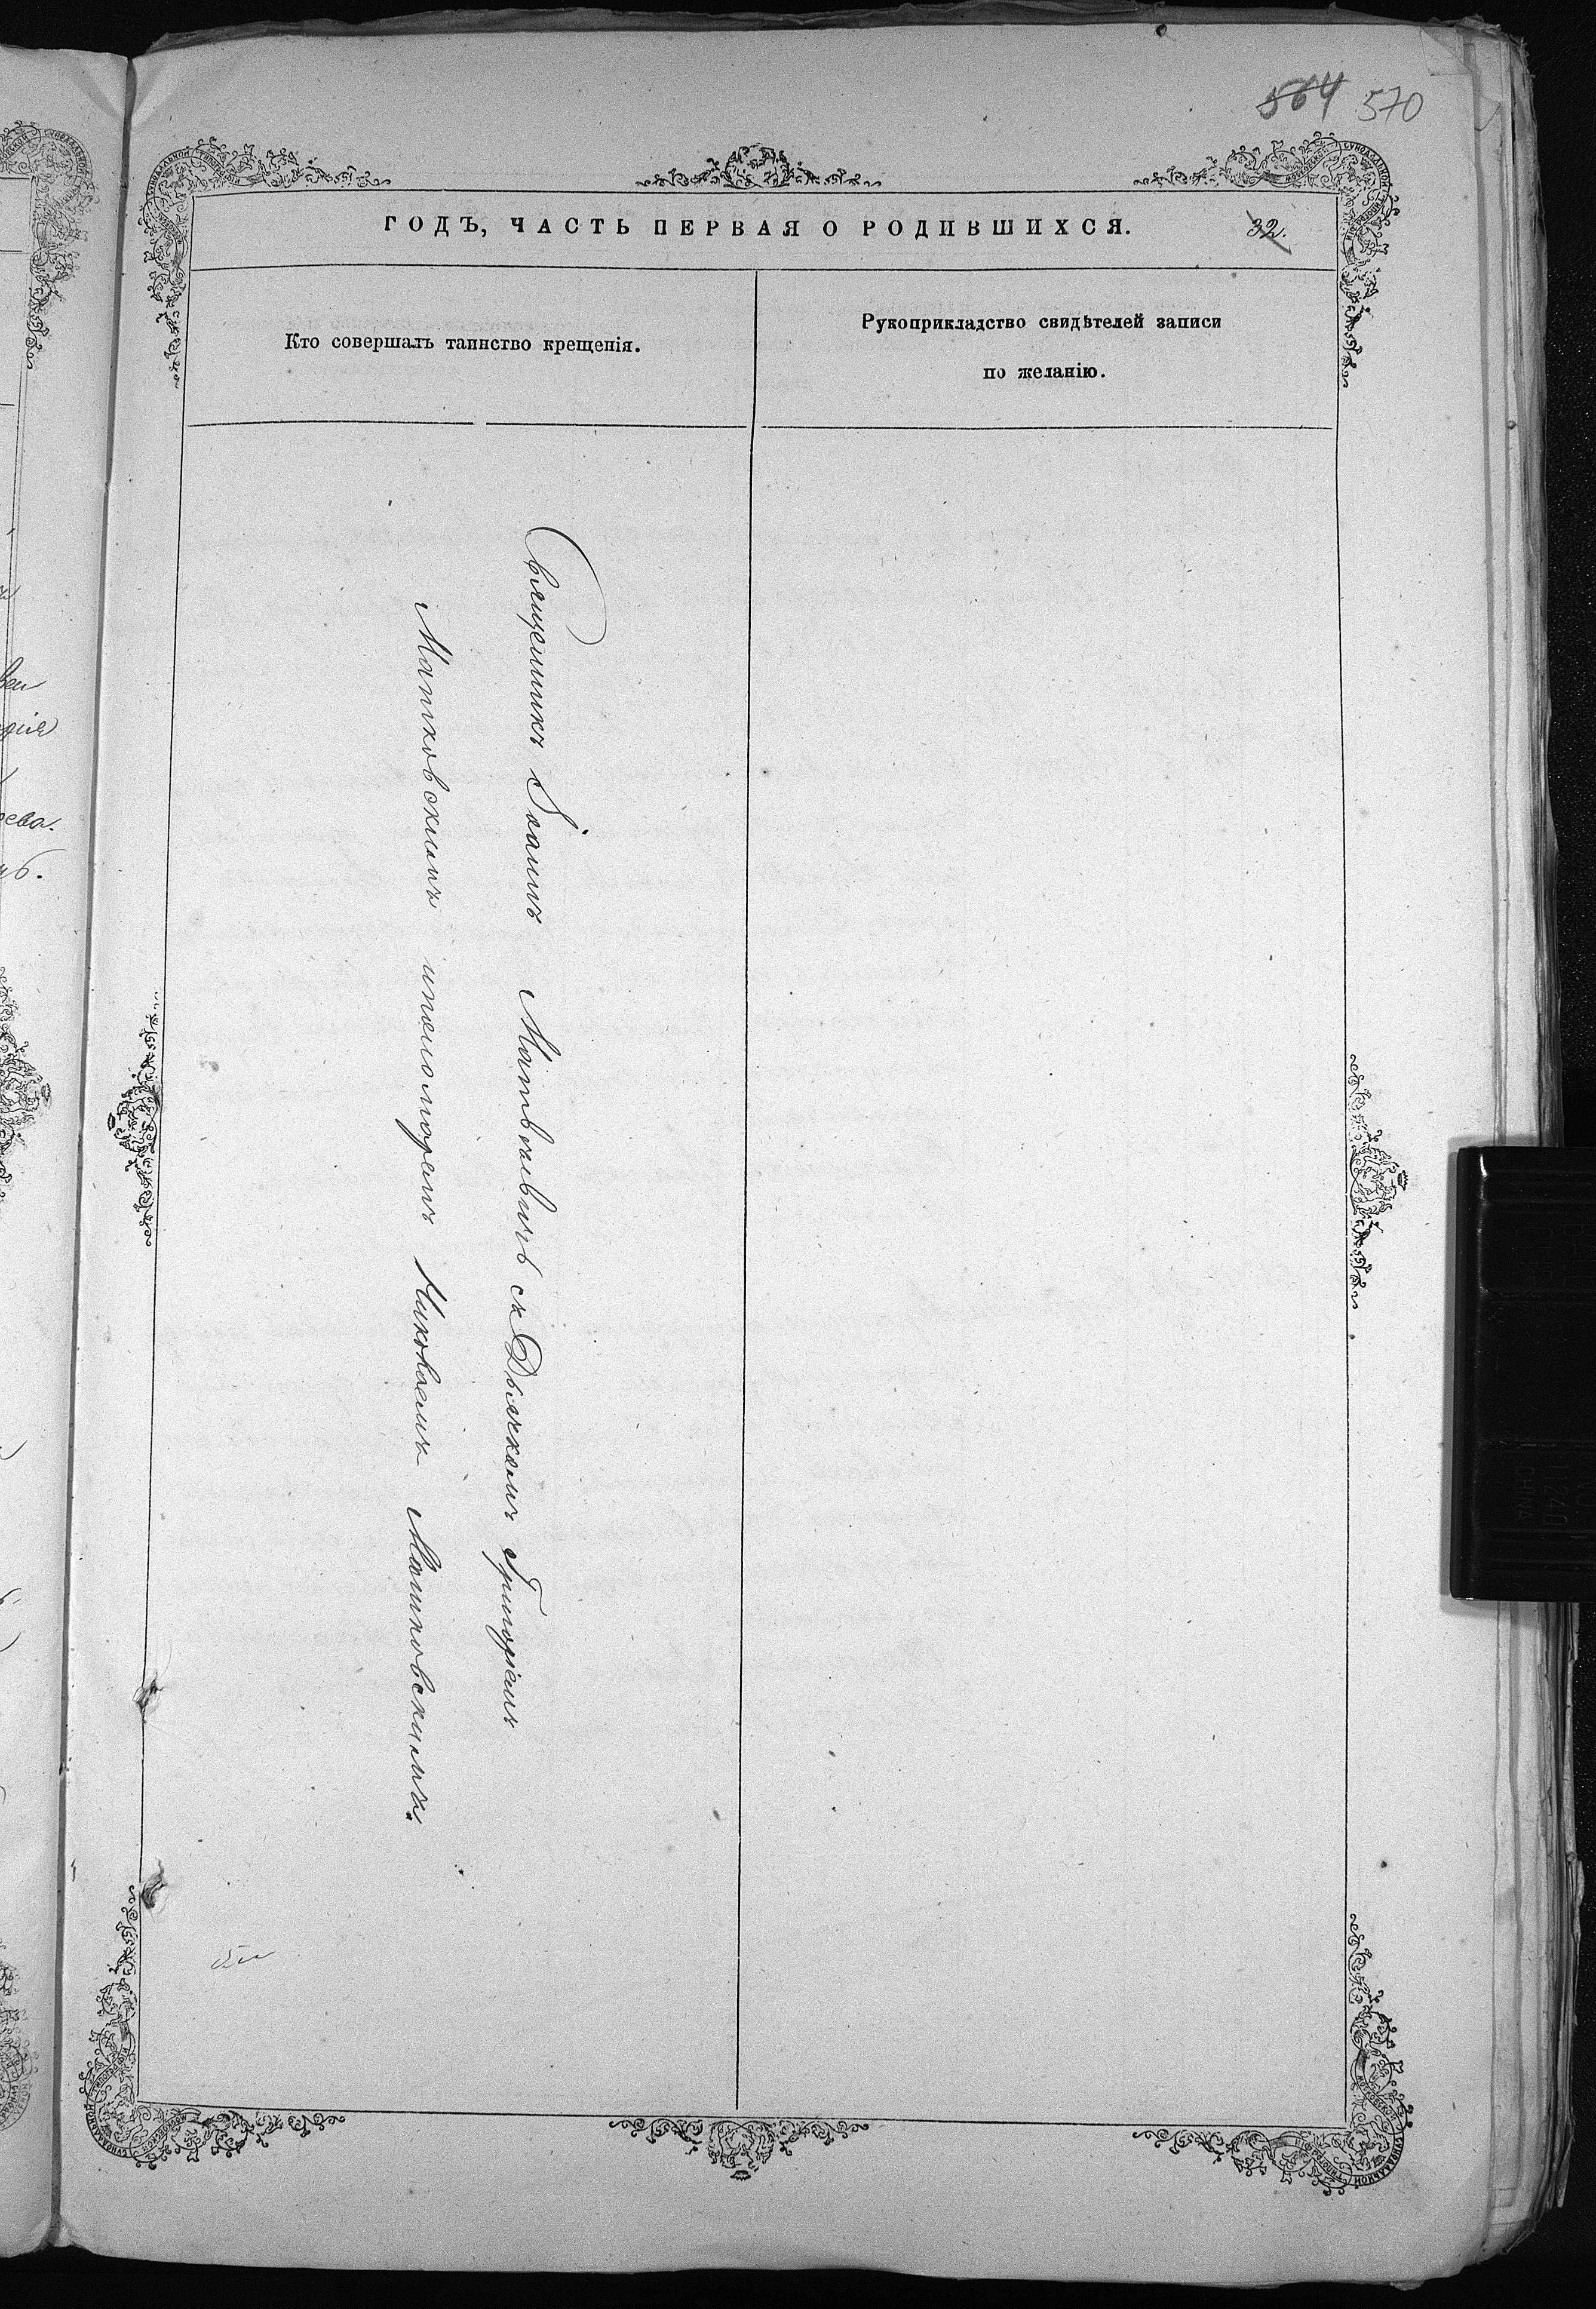 564 570
ГОДЪ, ЧАСТЬ ПЕРВАЯ О РОДИВШИХСЯ. 32.
Кто совершалъ таинство крещенія.
Рукоприкладство свидѣтелей записи
по желанію.
Священникъ Іоаннъ Матвѣевичъ съ Дьячкомъ Григоріемъ
Матковскимъ и пономаремъ Николаемъ Матковскимъ.